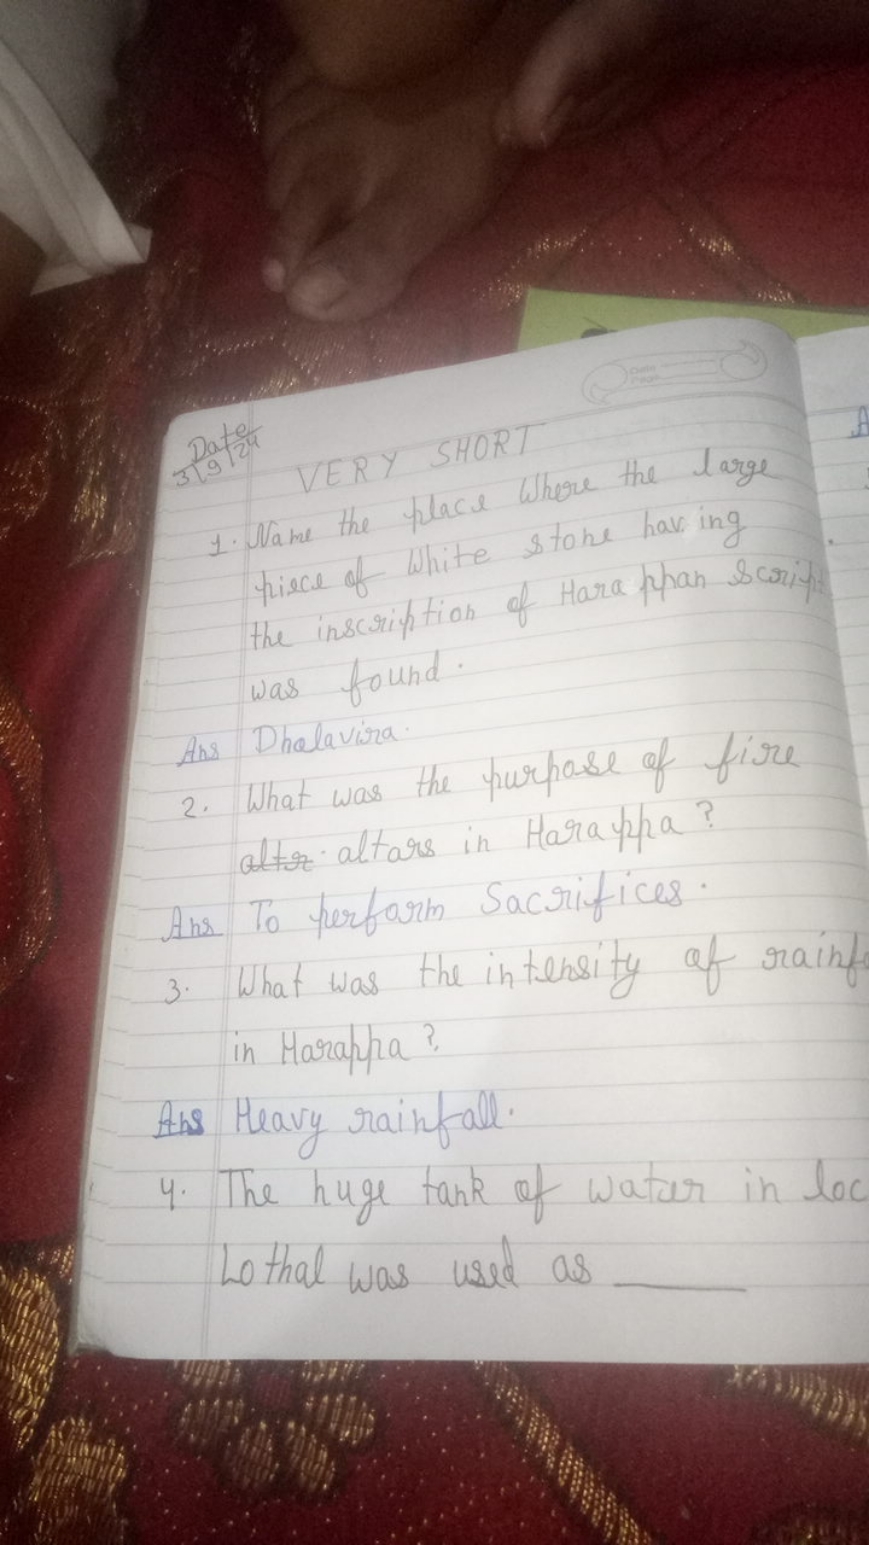 Date
Page
Date
3/9/24
VERY SHORT
1. Name the place Where the large
piece of White stone having
the inscription of Harappan Script
was found.
Ans Dholavira.
2. What was the purpose of fire
alter. altars in Harappa?
Ans To perform Sacrifices.
3. What was the intensity of rainfa
in Harappa?
Ans Heavy rainfall.
4. The huge tank of water in loc
Lothal was used as ______
A